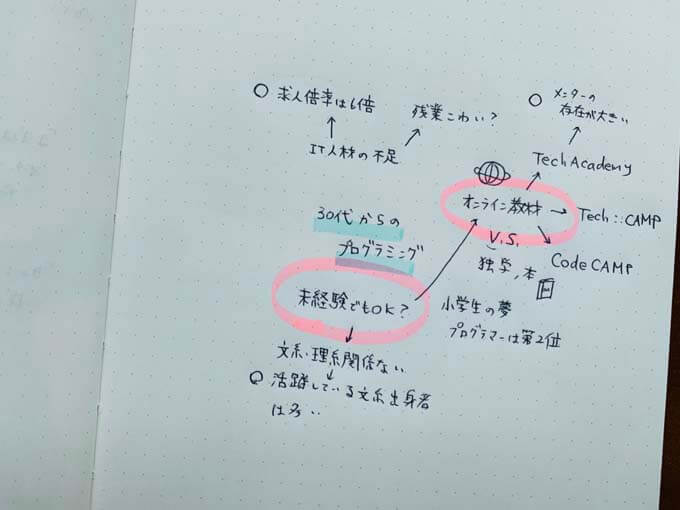 ○ 求人倍率は6倍
残業こわい?
IT人材の不足
○ メンターの
存在が大きい
TechAcademy
オンライン教材
Tech::CAMP
V.S.
CodeCAMP
独学,本
30代からの
プログラミング
未経験でもOK?
小学生の夢
プログラマーは第2位
文系・理系関係ない
○ 活躍している文系出身者
は多い